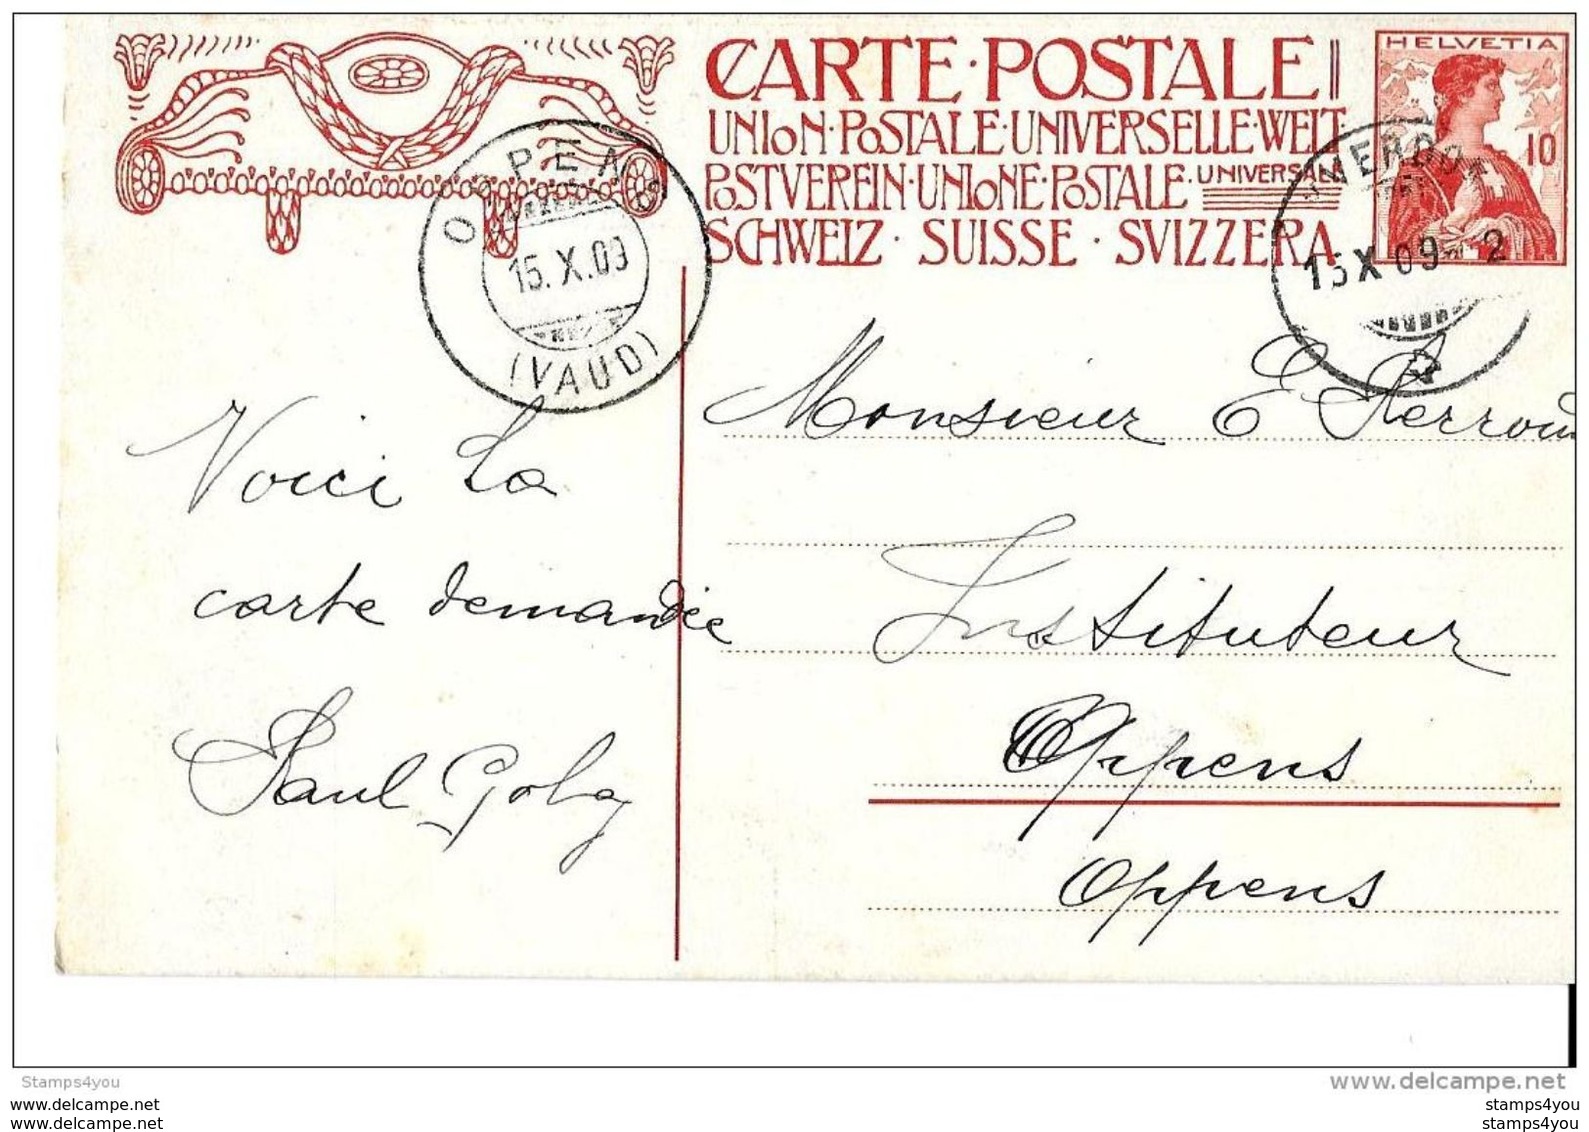 CARTE·POSTALE
UNION·POSTALE·UNIVERSELLE·WELT
POSTVEREIN·UNIONE·POSTALE·UNIVERSALE
SCHWEIZ·SUISSE·SVIZZERA
HELVETIA
10
OPPENS
15.X.09
(VAUD)
15 X 09 2
Monsieur E
Voici la
carte demandée
Paul Golay
Instituteur
Oppens
Oppens
Stamps4you
www.delcampe.net
www.stamps4you.com
www.stamps4you.com
stamps4you
stamps4you